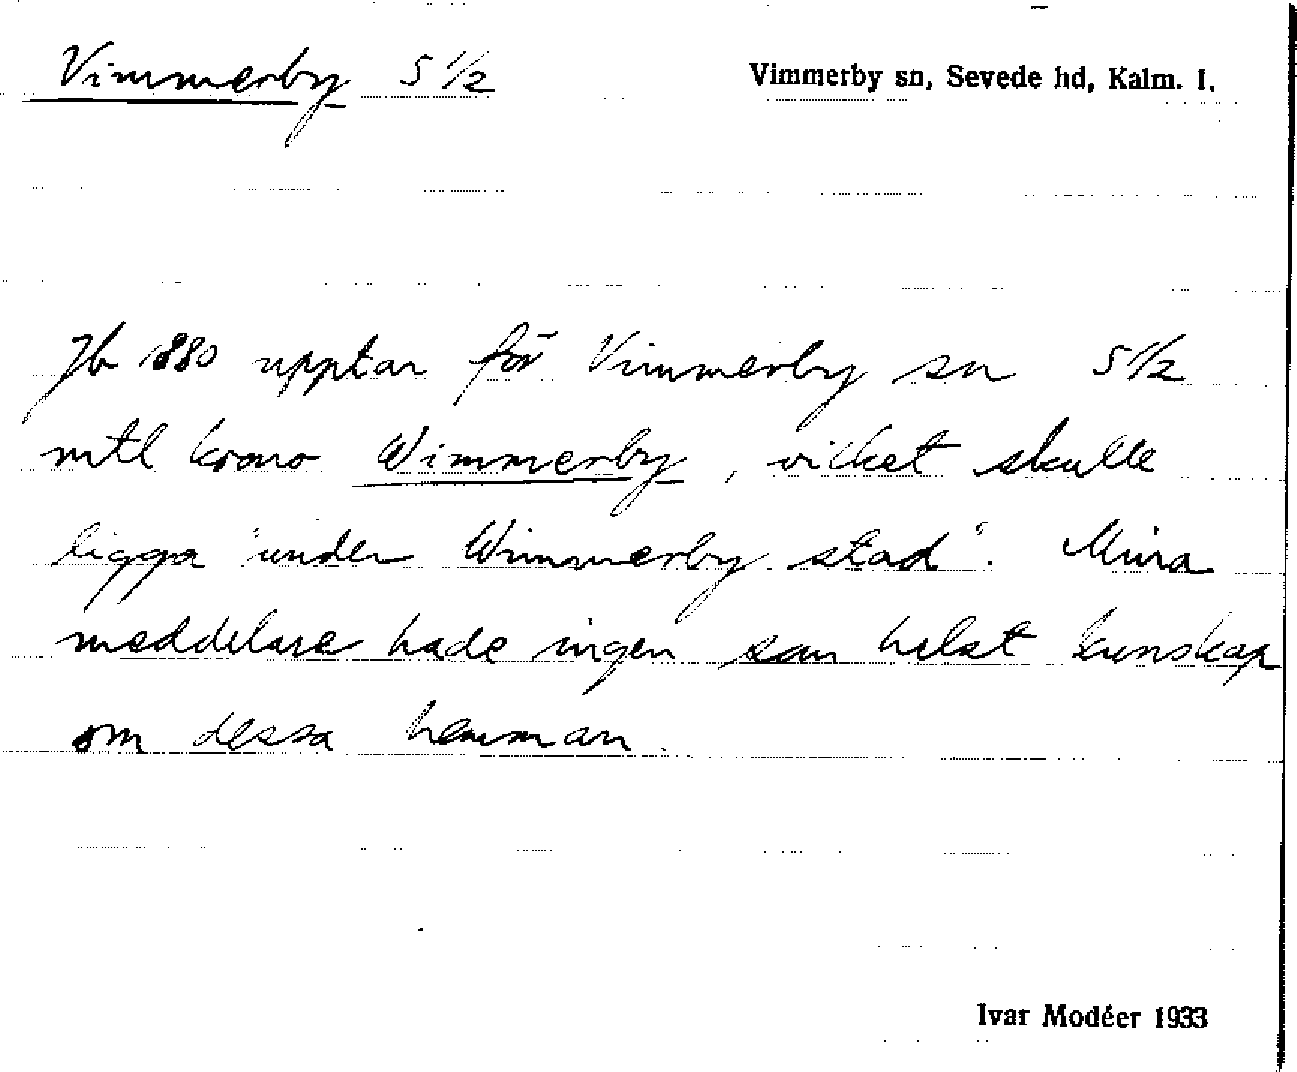 Vimmerby 5 1/2 Vimmerby sn, Sevede hd, Kalm. l.
Jb 1880 upptar för Vimmerby sn 5 1/2
mtl krono Wimmerby, vilket skulle
ligga "under Wimmerby stad". Mina
meddelare hade ingen som helst kunskap
om dessa hemman.
Ivar Modéer 1933